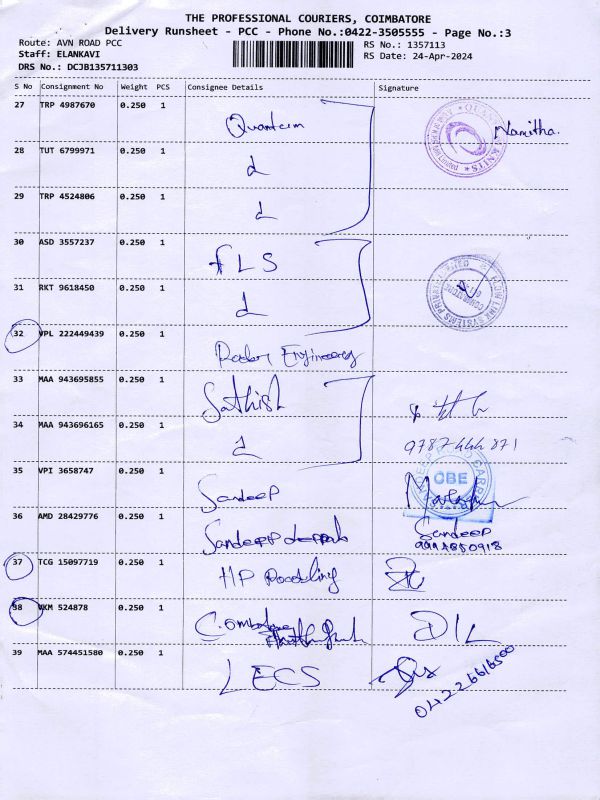 THE PROFESSIONAL COURIERS, COIMBATORE
Delivery Runsheet - PCC - Phone No.:0422-3505555 - Page No.:3
Route: AVN ROAD PCC
RS No.: 1357113
Staff: ELANKAVI
RS Date: 24-Apr-2024
DRS No.: DCJB135711303
S No Consignment No Weight PCS Consignee Details Signature
27 TRP 4987670 0.250 1 Quantum Namitha.
28 TUT 6799971 0.250 1
29 TRP 4524806 0.250 1
30 ASD 3557237 0.250 1 FLS
31 RKT 9618450 0.250 1
32 VPL 222449439 0.250 1 Engineering
33 MAA 943695855 0.250 1 Sathish
34 MAA 943696165 0.250 1
35 VPI 3658747 0.250 1 Sandeep CBE
36 AMD 28429776 0.250 1 Sandeep Sandeep
37 TCG 15097719 0.250 1 HP
38 VKM 524878 0.250 1
39 MAA 574451580 0.250 1 LECS
0422 6616500